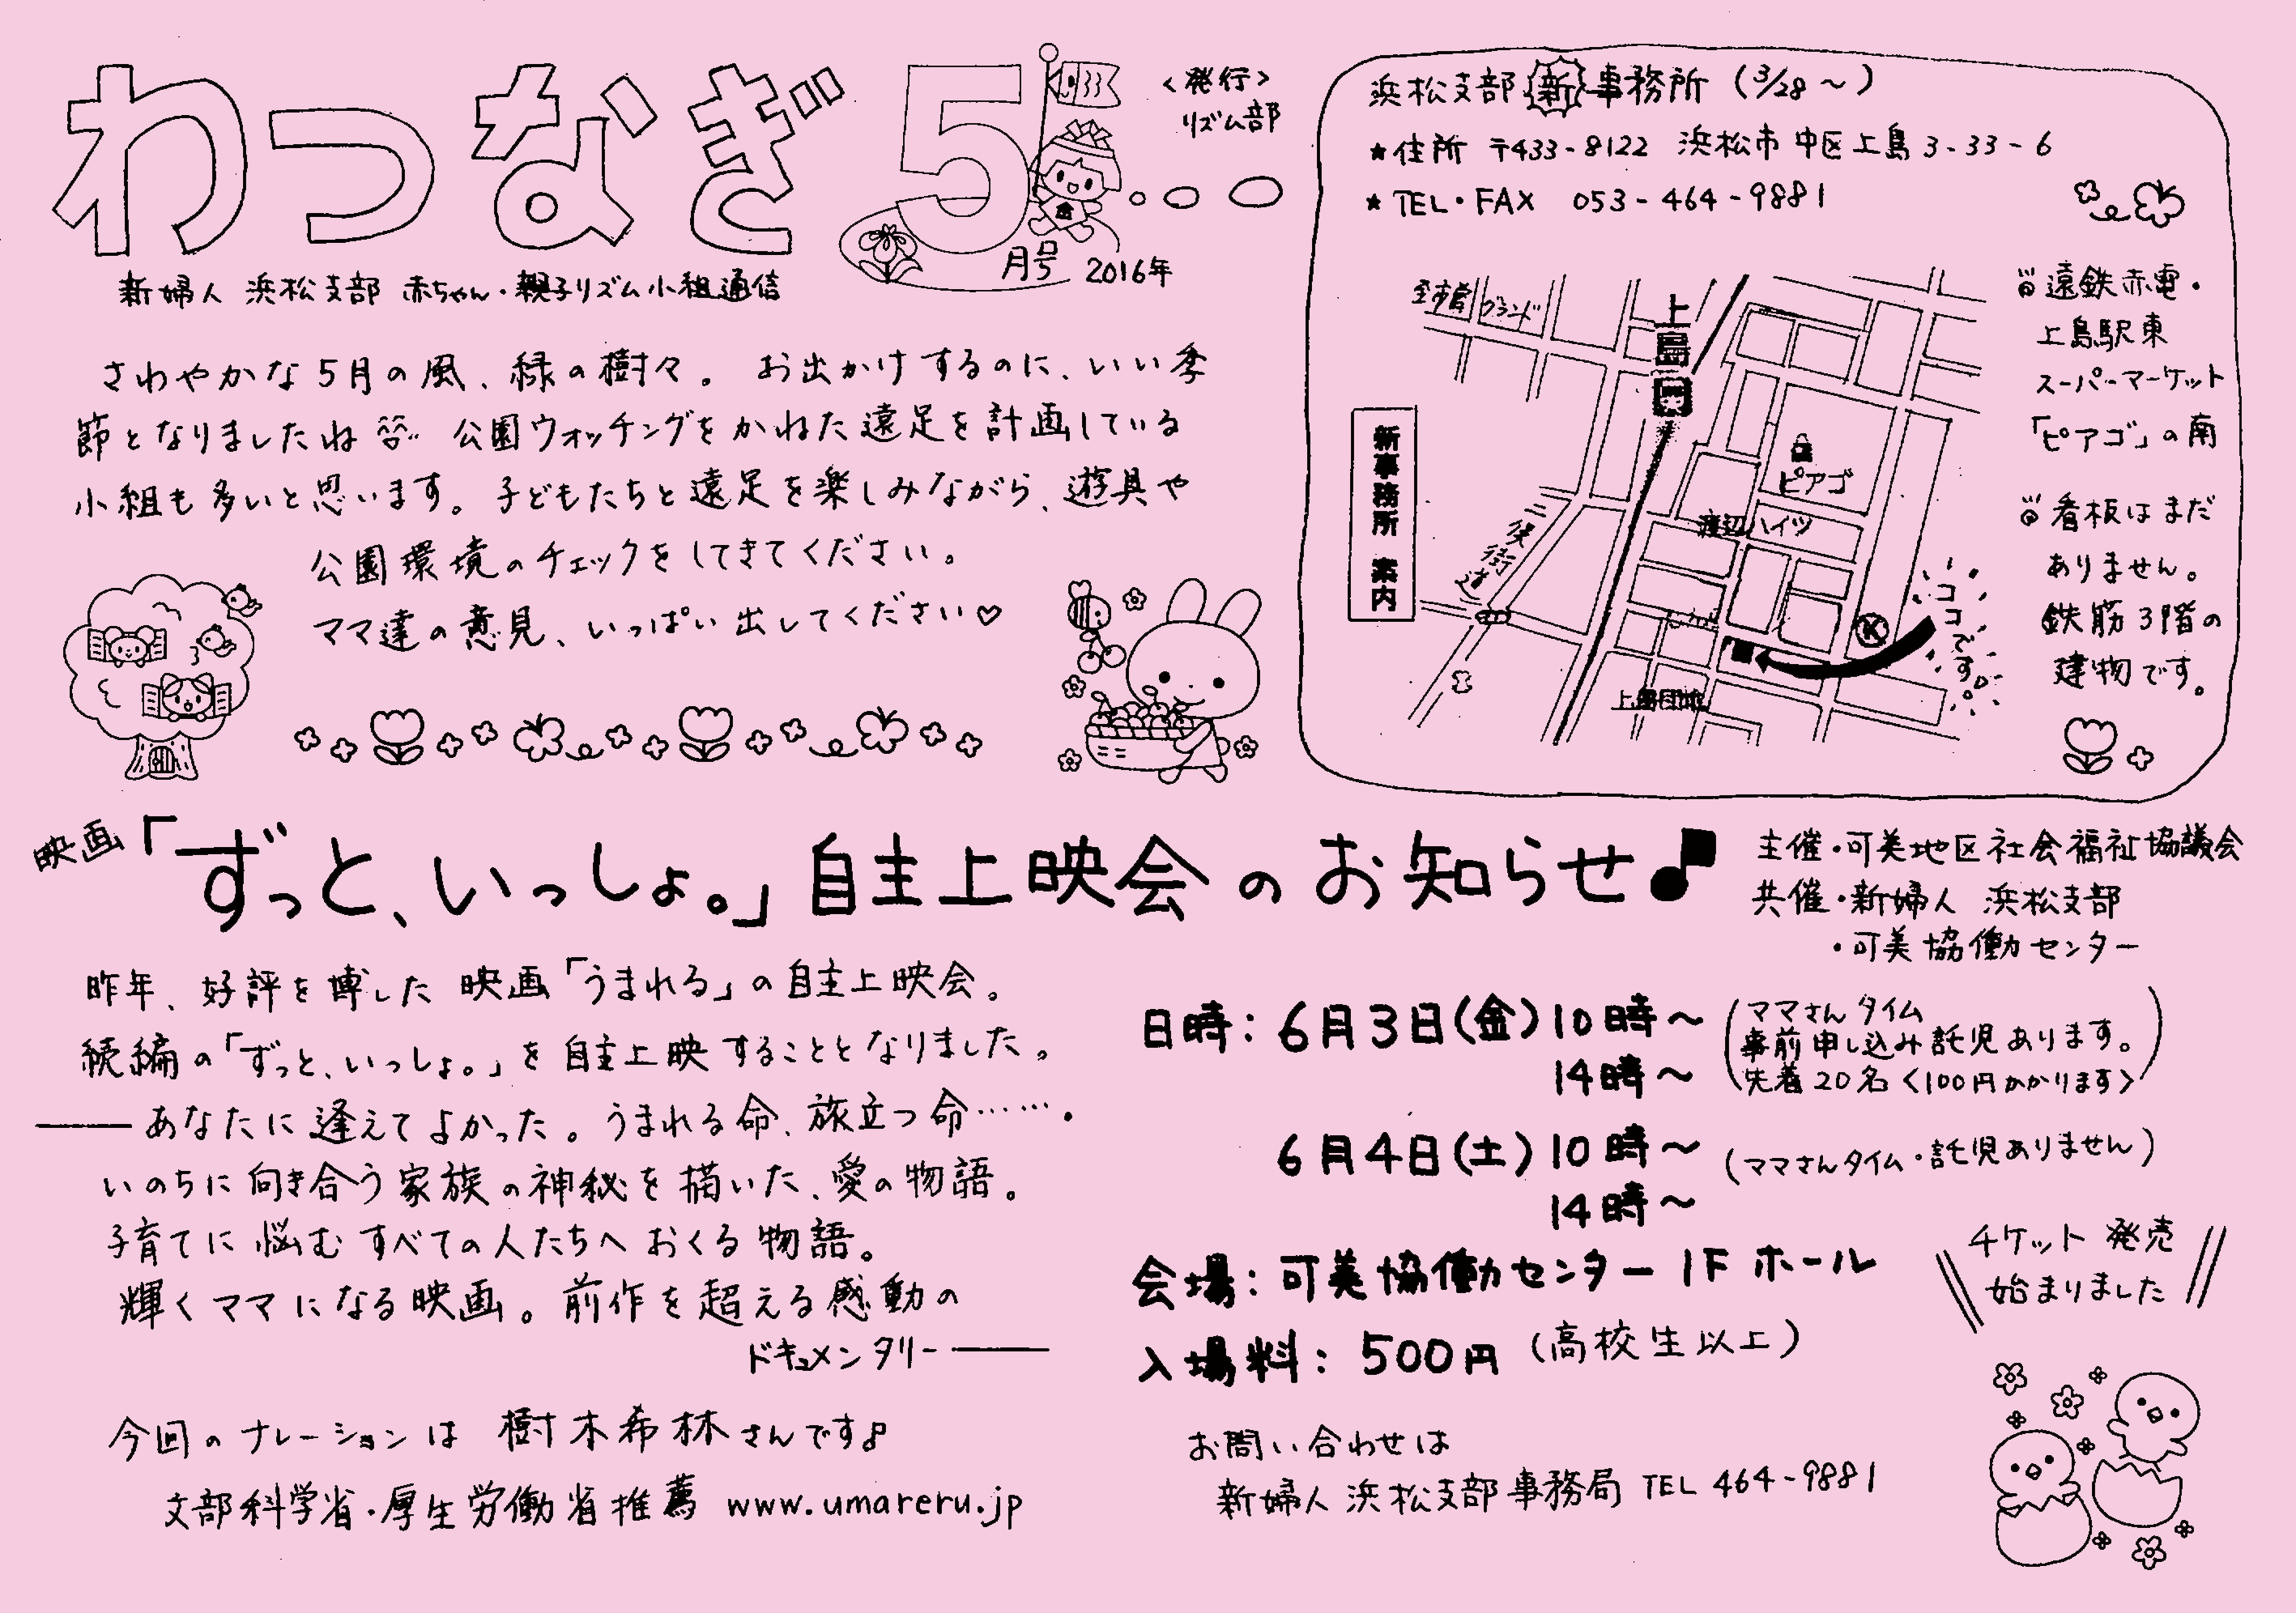 わつなぎ 5月号 2016年
<発行>
リズム部
新婦人 浜松支部 赤ちゃん・親子リズム小組通信
さわやかな5月の風、緑の樹々。お出かけするのに、いい季
節となりましたね 公園ウォッチングをかねた遠足を計画している
小組も多いと思います。子どもたちと遠足を楽しみながら、遊具や
公園環境のチェックをしてきてください。
ママ達の意見、いっぱい出してください♡
浜松支部 新 事務所 (3/28~)
★住所 〒433-8122 浜松市中区上島3-33-6
★TEL・FAX 053-464-9881
新事務所 案内
至市営グランド
上島駅
ピアゴ
渡辺ハイツ
二俣街道
上島団地
K
ココです。
遠鉄赤電・
上島駅東
スーパーマーケット
「ピアゴ」の南
看板はまだ
ありません。
鉄筋3階の
建物です。
映画「ずっと、いっしょ。」自主上映会のお知らせ♪
主催・可美地区社会福祉協議会
共催・新婦人 浜松支部
・可美協働センター
昨年、好評を博した 映画「うまれる」の自主上映会。
続編の「ずっと、いっしょ。」を自主上映することとなりました。
――あなたに逢えてよかった。うまれる命、旅立つ命……。
いのちに向き合う家族の神秘を描いた、愛の物語。
子育てに悩むすべての人たちへおくる物語。
輝くママになる映画。前作を超える感動の
ドキュメンタリー――
今回のナレーションは 樹木希林さんです♪
文部科学省・厚生労働省推薦 www.umareru.jp
日時：6月3日(金)10時~
14時~
(ママさんタイム
事前申し込み託児あります。
先着20名<100円かかります>)
6月4日(土)10時~ (ママさんタイム・託児ありません)
14時~
会場：可美協働センター 1F ホール
入場料：500円 (高校生以上)
チケット発売
始まりました
お問い合わせは
新婦人 浜松支部事務局 TEL 464-9881